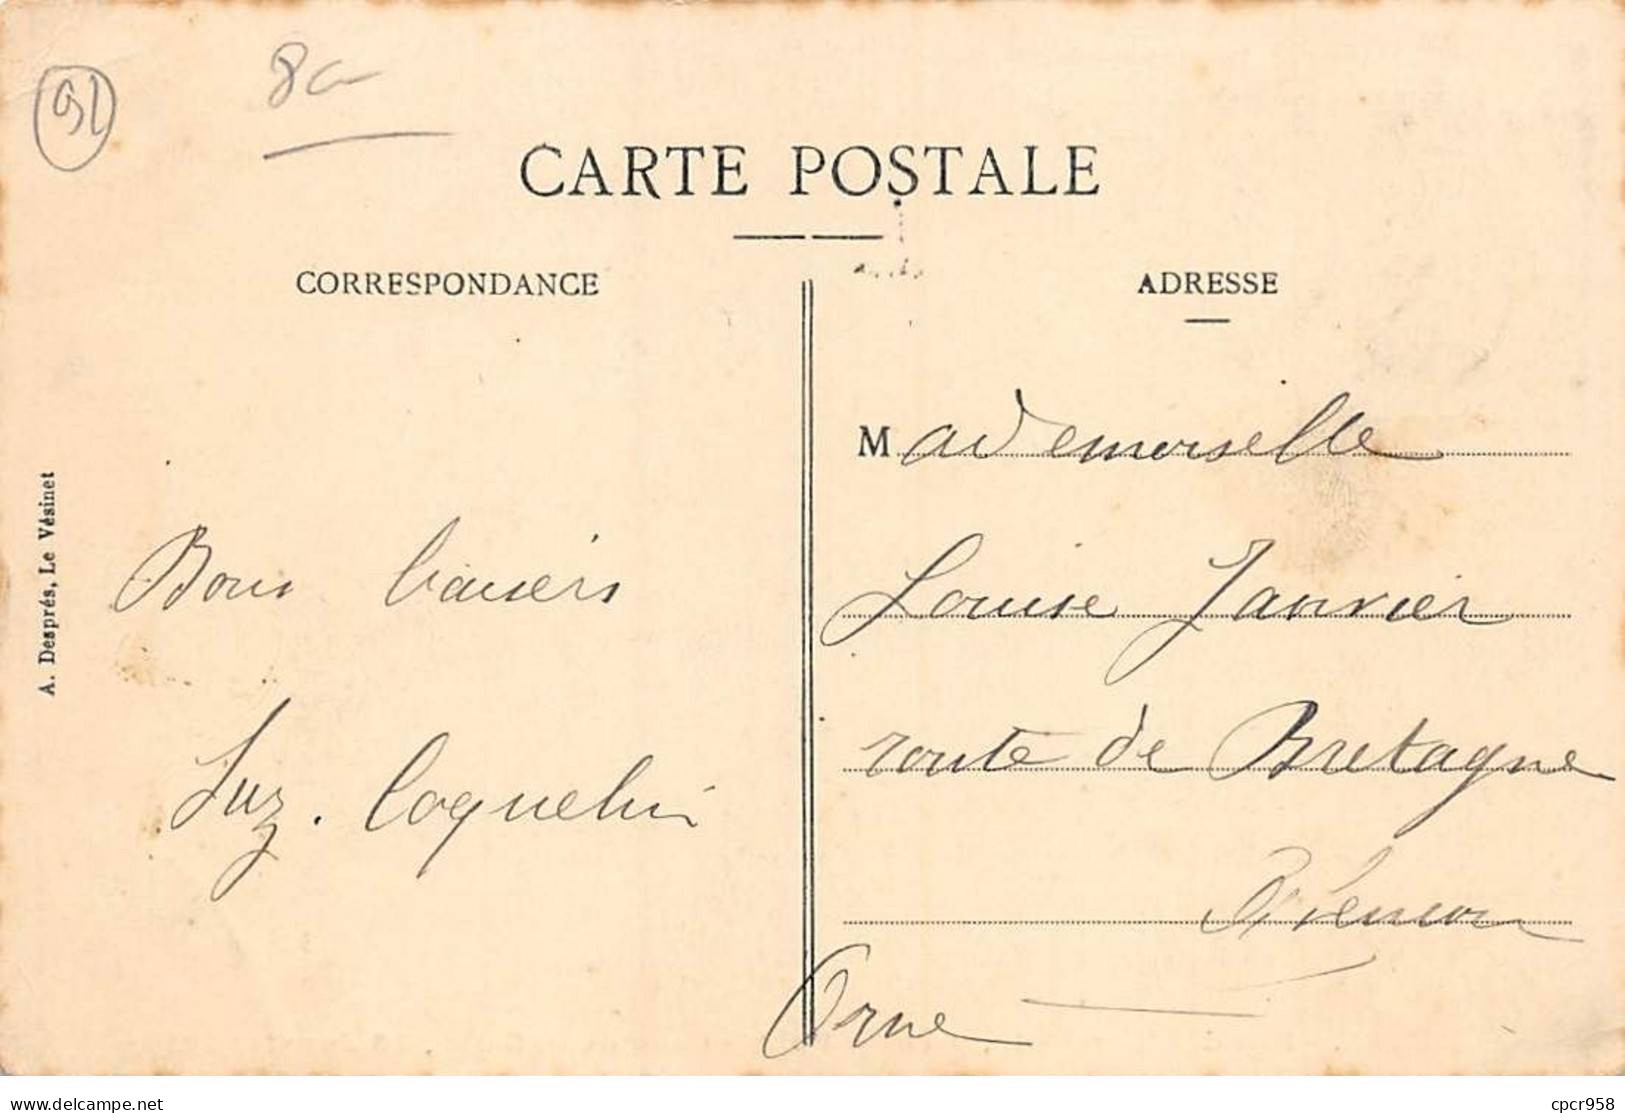 91
CARTE POSTALE
CORRESPONDANCE
ADRESSE
Mademoiselle
Louise Janvier
route de Bretagne
Orne
Bons baisers
Suz. Coquelin
A. Després, Le Vésinet
delcampe.net
cpcr958